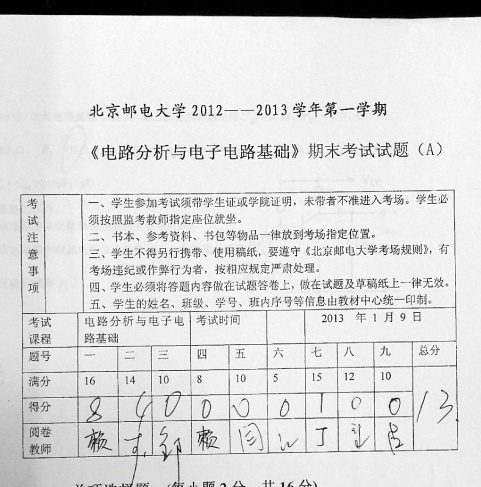 北京邮电大学 2012——2013 学年第一学期
《电路分析与电子电路基础》期末考试试题（A）
考试注意事项
一、学生参加考试须带学生证或学院证明，未带者不准进入考场。学生必
须按照监考教师指定座位就坐。
二、书本、参考资料、书包等物品一律放到考场指定位置。
三、学生不得另行携带、使用稿纸，要遵守《北京邮电大学考场规则》，有
考场违纪或作弊行为者，按相应规定严肃处理。
四、学生必须将答题内容做在试题答卷上，做在试题及草稿纸上一律无效。
五、学生的姓名、班级、学号、班内序号等信息由教材中心统一印制。
考试课程 电路分析与电子电路基础 考试时间 2013 年 1 月 9 日
题号 一 二 三 四 五 六 七 八 九 总分
满分 16 14 10 8 10 5 15 12 10
得分 8 4 0 0 0 0 1 0 0 13
阅卷教师 赖 邹 赖 闫 丁